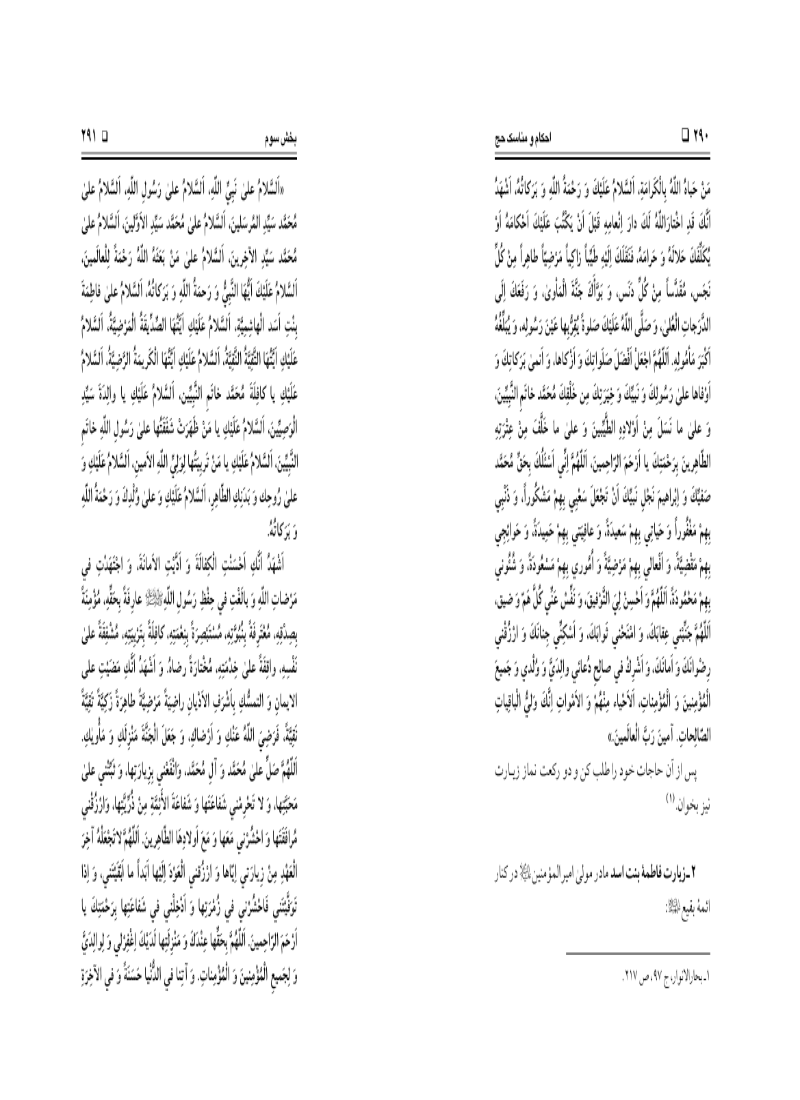 ۲۹۰ ❑ احکام و مناسک حج
مَنْ حَباهُ اللَّهُ بِالْكَرامَةِ، اَلسَّلامُ عَلَيْكَ وَ رَحْمَةُ اللَّهِ وَ بَرَكاتُهُ، اَشْهَدُ
اَنَّكَ قَدِ اخْتارَاللَّهُ لَكَ دارَ اِنْعامِهِ قَبْلَ اَنْ يَكْتُبَ عَلَيْكَ اَحْكامَهُ اَوْ
يُكَلِّفَكَ حَلالَهُ وَ حَرامَهُ، فَنَقَلَكَ اِلَيْهِ طَيِّباً زاكِياً مَرْضِيّاً طاهِراً مِنْ كُلِّ
نَجَسٍ، مُقَدَّساً مِنْ كُلِّ دَنَسٍ، وَ بَوَّأَكَ جَنَّةَ الْمَأْوىٰ، وَ رَفَعَكَ اِلَى
الدَّرَجاتِ الْعُلىٰ، وَ صَلَّى اللَّهُ عَلَيْكَ صَلوةً يُقِرُّبِها عَيْنَ رَسُولِهِ، وَ يُبَلِّغُهُ
اَكْبَرَ مَأْمُولِهِ. اَللَّهُمَّ اجْعَلْ اَفْضَلَ صَلَواتِكَ وَ اَزْكاها، وَ اَنمىٰ بَرَكاتِكَ وَ
اَوْفاها علىٰ رَسُولِكَ وَ نَبِيِّكَ وَ خِيَرَتِكَ مِن خَلْقِكَ مُحَمَّد خاتَمِ النَّبِيِّينَ،
وَ علىٰ ما نَسَلَ مِنْ اَوْلادِهِ الطَّيِّبينَ وَ علىٰ ما خَلَّفَ مِنْ عِتْرَتِهِ
الطّاهِرينَ بِرَحْمَتِكَ يا اَرْحَمَ الرّاحِمينَ، اَللّهُمَّ اِنّي اَسْئَلُكَ بِحَقِّ مُحَمَّد
صَفِيِّكَ وَ اِبْراهيمَ نَجْلِ نَبِيِّكَ اَنْ تَجْعَلَ سَعْيِي بِهِمْ مَشْكُوراً، وَ ذَنْبِي
بِهِمْ مَغْفُوراً وَ حَياتي بِهِمْ سَعيدَةً، وَ عافِيَتي بِهِمْ حَميدَةً، وَ حَوائِجِي
بِهِمْ مَقْضِيَّةً، وَ اَفْعالي بِهِمْ مَرْضِيَّةً وَ اُمُوري بِهِمْ مَسْعُودَةً، وَ شُئُوني
بِهِمْ مَحْمُودَةً. اَللّهُمَّ وَ اَحْسِنْ لِيَ التَّوْفيقَ، وَ نَفِّسْ عَنّي كُلَّ هَمٍّ وَ ضيقٍ،
اَللّهُمَّ جَنِّبْني عِقابَكَ، وَ امْنَحْني ثَوابَكَ، وَ اَسْكِنِّي جِنانَكَ وَ ارْزُقْني
رِضْوانَكَ وَ اَمانَكَ، وَ اَشْرِكْ في صالِحِ دُعائي والِدَيَّ وَ وُلْدي وَ جَميعَ
الْمُؤْمِنينَ وَ الْمُؤْمِناتِ، اَلاَحْياءِ مِنْهُمْ وَ الاَمْواتِ اِنَّكَ وَلِيُّ الْباقِياتِ
الصّالِحاتِ. آمينَ رَبَّ الْعالَمينَ.»
پس از آن حاجات خود را طلب كن و دو ركعت نماز زيارت
نيز بخوان.(۱)
۲ـ زيارت فاطمهٔ بنت اسد مادر مولىٰ اميرالمؤمنين در كنار
ائمهٔ بقيع:
۱ـ بحارالانوار، ج ۹۷، ص ۲۱۷.
بخش سوم ❑ ۲۹۱
«اَلسَّلامُ علىٰ نَبِيِّ اللَّهِ، اَلسَّلامُ علىٰ رَسُولِ اللَّهِ، اَلسَّلامُ علىٰ
مُحَمَّد سَيِّدِ المُرسَلينَ، اَلسَّلامُ علىٰ مُحَمَّد سَيِّدِ الاَوَّلينَ، اَلسَّلامُ علىٰ
مُحَمَّد سَيِّدِ الآخِرينَ، اَلسَّلامُ علىٰ مَنْ بَعَثَهُ اللَّهُ رَحْمَةً لِلْعالَمينَ،
اَلسَّلامُ عَلَيْكَ اَيُّهَا النَّبِيُّ وَ رَحمةُ اللَّهِ وَ بَرَكاتُهُ، اَلسَّلامُ علىٰ فاطِمَةَ
بِنْتِ اَسَد الْهاشِمِيَّةِ، اَلسَّلامُ عَلَيْكِ اَيَّتُهَا الصِّدّيقَةُ الْمَرْضِيَّةُ، اَلسَّلامُ
عَلَيْكِ اَيَّتُهَا التَّقِيَّةُ النَّقِيَّةُ، اَلسَّلامُ عَلَيْكِ اَيَّتُهَا الْكَريمَةُ الرَّضِيَّةُ، اَلسَّلامُ
عَلَيْكِ يا كافِلَةَ مُحَمَّد خاتَمِ النَّبِيِّين، اَلسَّلامُ عَلَيْكِ يا والِدَةَ سَيِّدِ
الْوَصِيِّينَ، اَلسَّلامُ عَلَيْكِ يا مَنْ ظَهَرَتْ شَفَقَتُها علىٰ رَسُولِ اللَّهِ خاتَمِ
النَّبِيِّينَ، اَلسَّلامُ عَلَيْكِ يا مَنْ تَربِيَتُها لِوَلِيِّ اللَّهِ الاَمينِ، اَلسَّلامُ عَلَيْكِ وَ
علىٰ رُوحِكِ وَ بَدَنِكِ الطّاهِرِ، اَلسَّلامُ عَلَيْكِ وَ علىٰ وَلَدِكِ وَ رَحْمَةُ اللَّهِ
وَ بَرَكاتُهُ.
اَشْهَدُ اَنَّكِ اَحْسَنْتِ الْكِفالَةَ وَ اَدَّيْتِ الاَمانَةَ، وَ اجْتَهَدْتِ في
مَرْضاتِ اللَّهِ وَ بالَغْتِ في حِفْظِ رَسُولِ اللَّهِ عارِفَةً بِحَقِّهِ، مُؤْمِنَةً
بِصِدْقِهِ، مُعْتَرِفَةً بِنُبُوَّتِهِ، مُسْتَبْصِرَةً بِنِعْمَتِهِ، كافِلَةً بِتَرْبِيَتِهِ، مُشْفِقَةً علىٰ
نَفْسِهِ، واقِفَةً علىٰ خِدْمَتِهِ، مُخْتارَةً رِضاهُ. وَ اَشْهَدُ اَنَّكِ مَضَيْتِ علىٰ
الايمانِ وَ التمسُّكِ بِاَشْرَفِ الاَدْيانِ راضِيَةً مَرْضِيَّةً طاهِرَةً زَكِيَّةً تَقِيَّةً
نَقِيَّةً، فَرَضِيَ اللَّهُ عَنْكِ وَ اَرْضاكِ، وَ جَعَلَ الْجَنَّةَ مَنْزِلَكِ وَ مَأْويكِ.
اَللّهُمَّ صَلِّ علىٰ مُحَمَّد وَ آلِ مُحَمَّد، وَانْفَعْني بِزِيارَتِها، وَ ثَبِّتْني علىٰ
مَحَبَّتِها، وَ لا تَحْرِمْني شَفاعَتَها وَ شَفاعَةَ الْأَئِمَّةِ مِنْ ذُرِّيَّتِها، وَارْزُقْني
مُرافَقَتَها وَ احْشُرْني مَعَها وَ مَعَ اَولادِهَا الطّاهِرينَ. اَللّهُمَّ لاتَجْعَلْهُ آخِرَ
الْعَهْدِ مِنْ زِيارَتي اِيّاها وَ ارْزُقْني الْعَوْدَ اِلَيْها اَبَداً ما اَبْقَيْتَني، وَ اِذا
تَوَفَّيْتَني فَاحْشُرْني في زُمْرَتِها وَ اَدْخِلْني في شَفاعَتِها بِرَحْمَتِكَ يا
اَرْحَمَ الرّاحِمينَ. اَللّهُمَّ بِحَقِّها عِنْدَكَ وَ مَنْزِلَتِها لَدَيْكَ اِغْفِرْلي وَ لِوالِدَيَّ
وَ لِجَميعِ الْمُؤْمِنينَ وَ الْمُؤْمِناتِ. وَ آتِنا في الدُّنْيا حَسَنَةً وَ في الآخِرَةِ